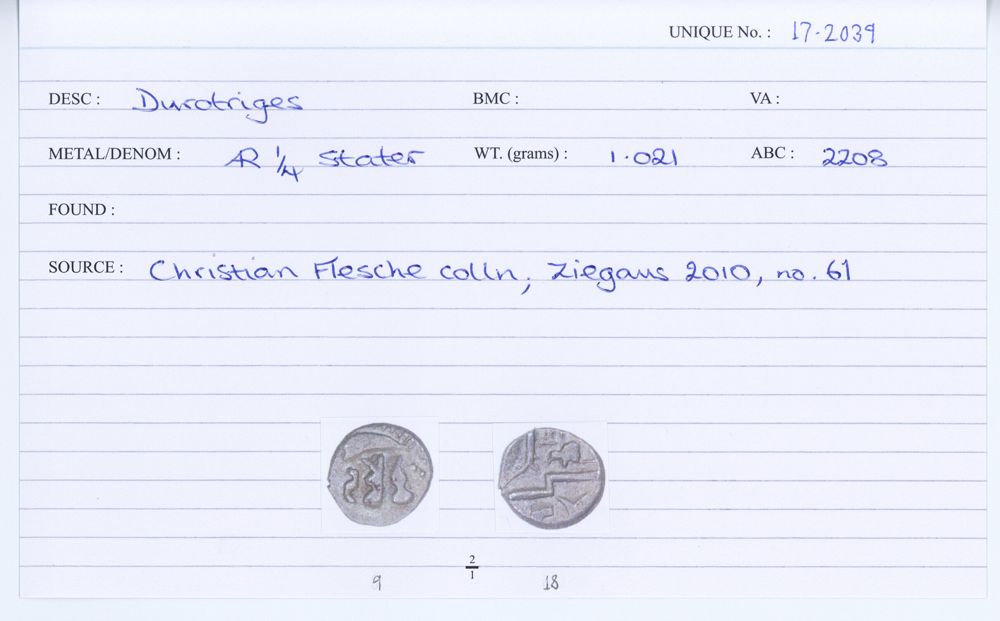 UNIQUE No. : 17-2039
DESC : Durotriges BMC : VA :
METAL/DENOM : AR 1/4 stater WT. (grams) : 1.021 ABC : 2208
FOUND :
SOURCE : Christian Flesche colln, Ziegaus 2010, no. 61
2/1
9 18